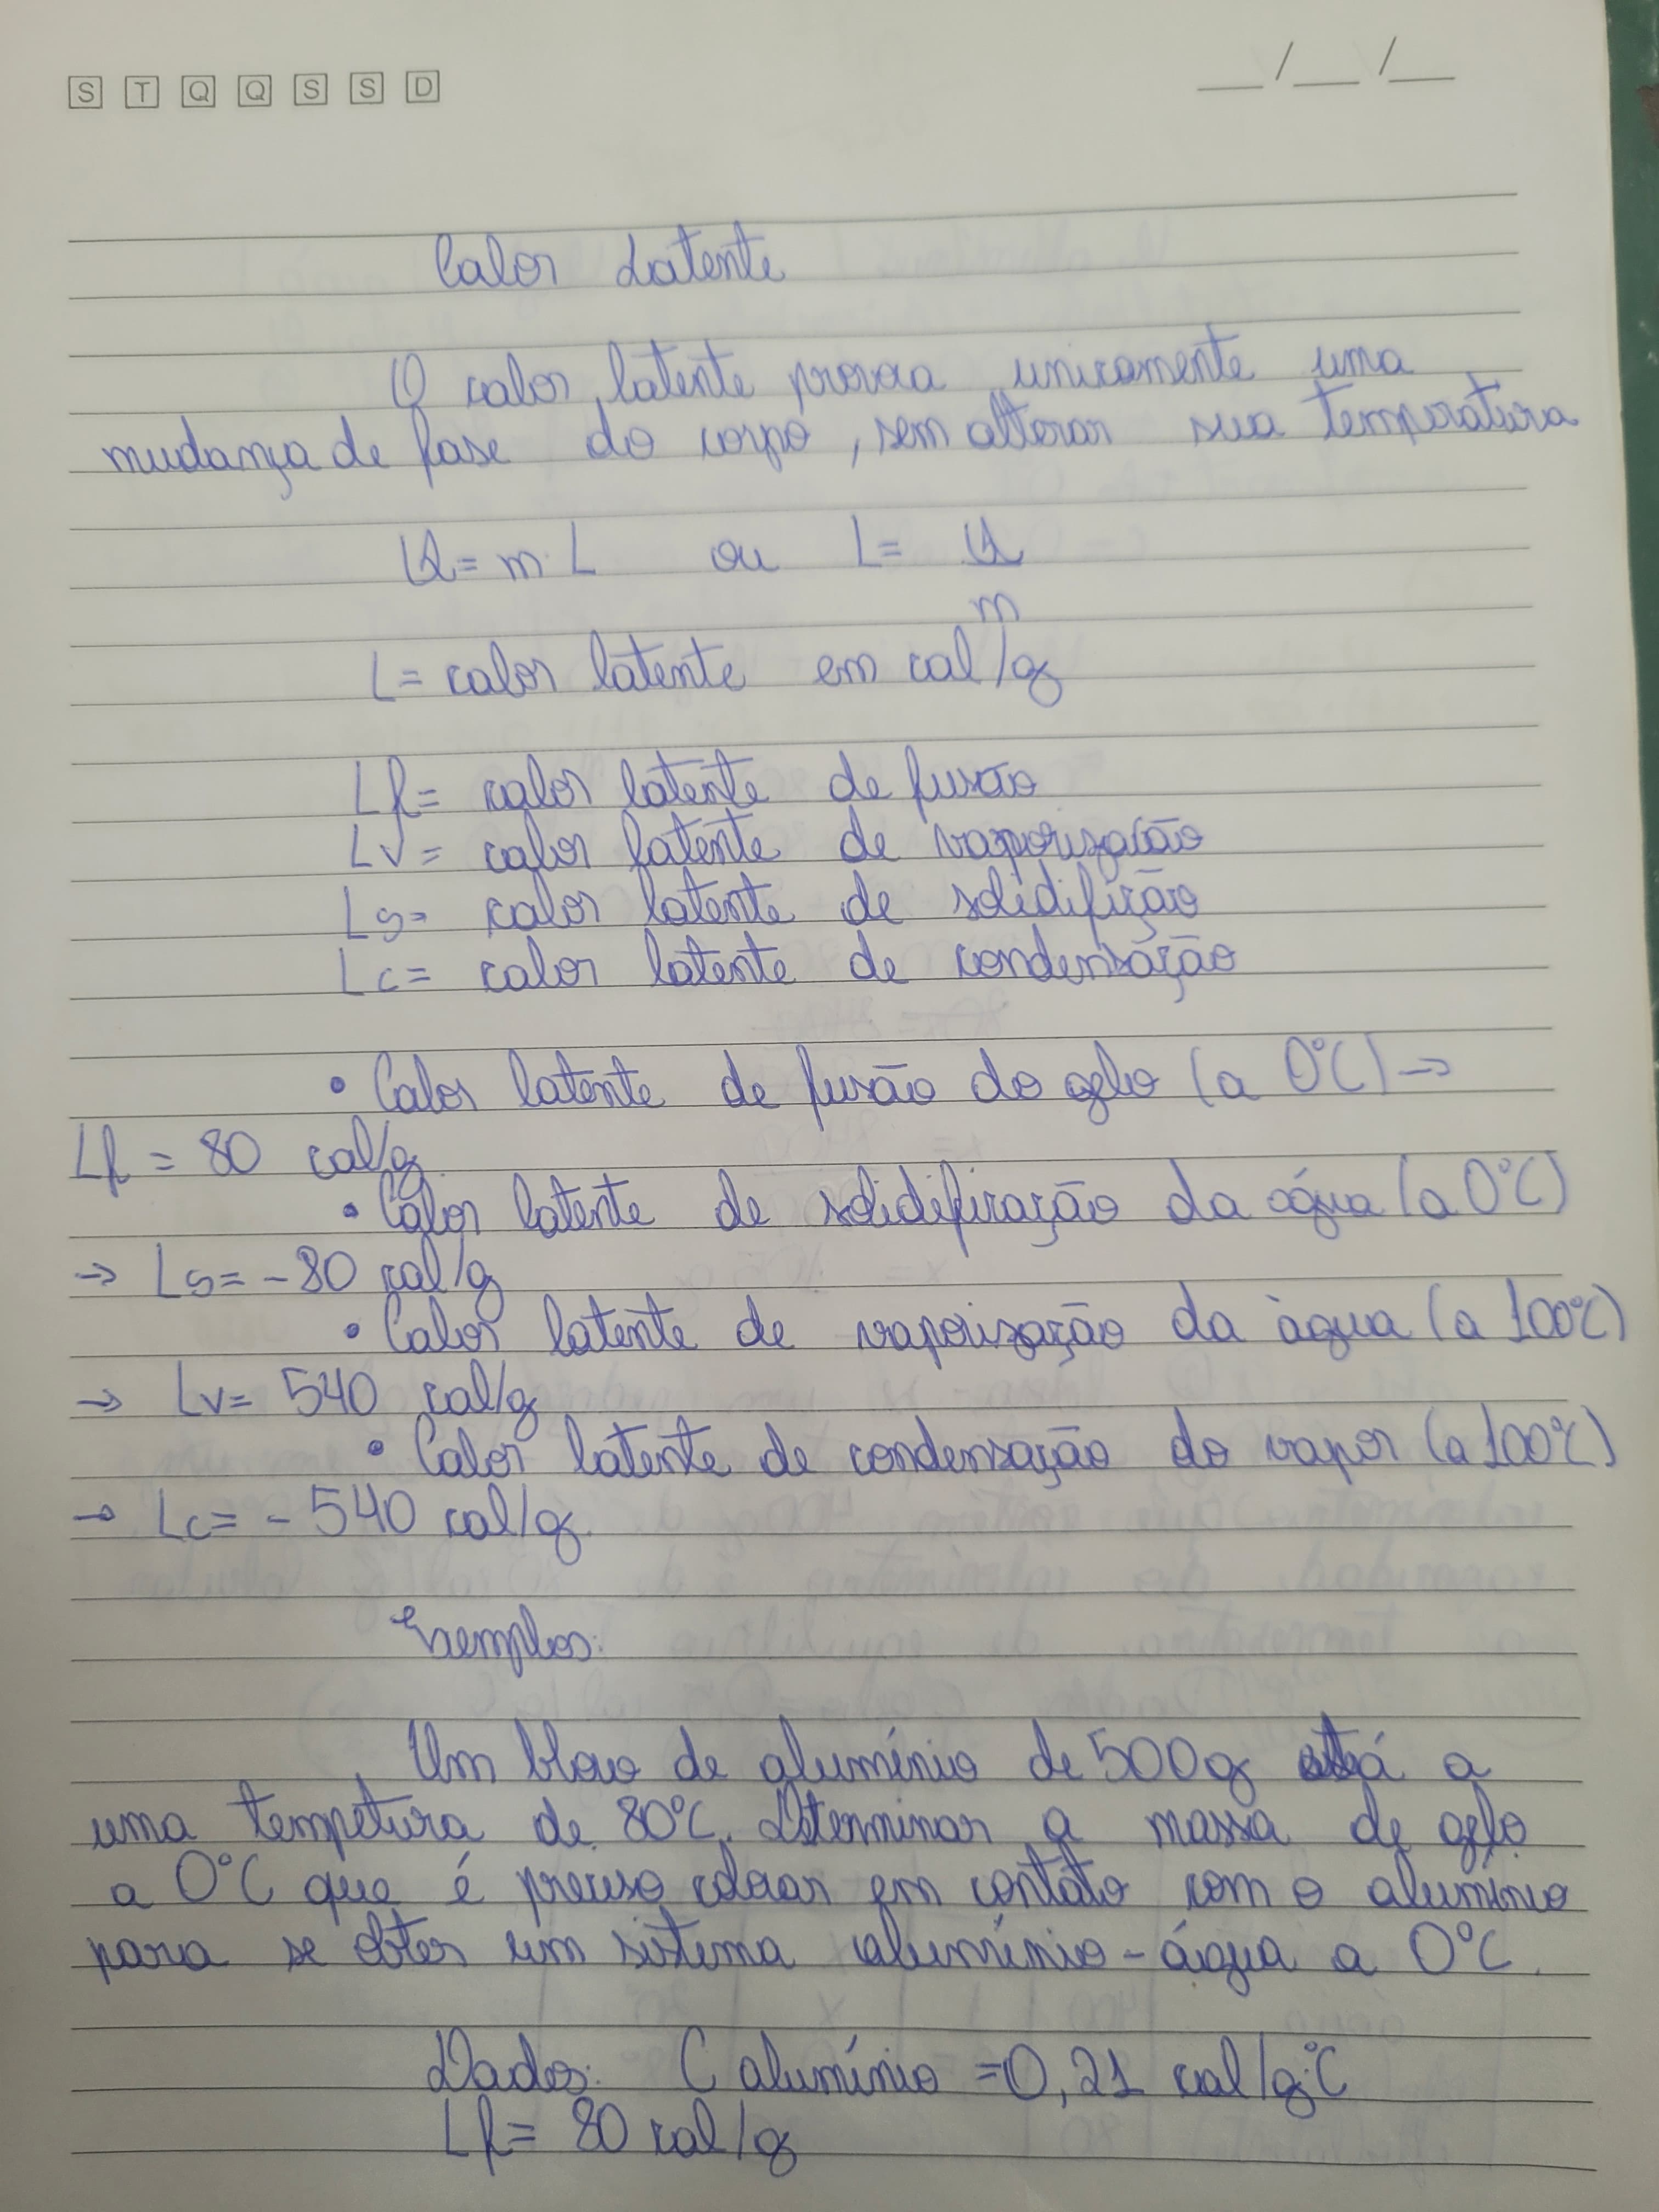 S T Q Q S S D __/__/__
Calor Latente
O calor latente provoca unicamente uma
mudança de fase do corpo, sem alterar sua temperatura
Q = m · L ou L = Q
m
L = calor latente em cal/g
Lf = calor latente de fusão
Lv = calor latente de vaporização
Ls = calor latente de solidifição
Lc = calor latente de condensação
• Calor latente de fusão do gelo (a 0°C) →
Lf = 80 cal/g
• Calor latente de solidificação da água (a 0°C)
→ Ls = -80 cal/g
• Calor latente de vaporização da àgua (a 100°C)
→ Lv = 540 cal/g
• Calor latente de condensação do vapor (a 100°C)
→ Lc = - 540 cal/g
Exemplos:
Um bloco de alumínio de 500g está a
uma tempetura de 80°C. Determinar a massa de gelo
a 0°C que é preciso colocar em contato com o alumínio
para se obter um sistema alumínio-água a 0°C.
Dados: C alumínio = 0,21 cal/g·°C
Lf = 80 cal/g